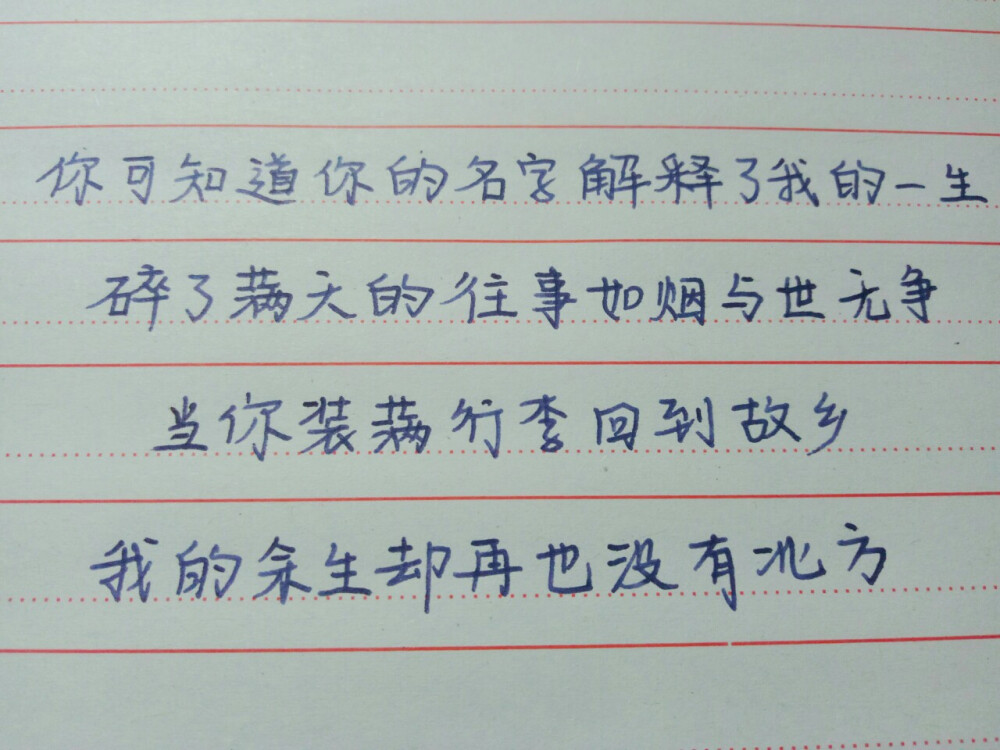 你可知道你的名字解释了我的一生
碎了满天的往事如烟与世无争
当你装满行李回到故乡
我的余生却再也没有北方